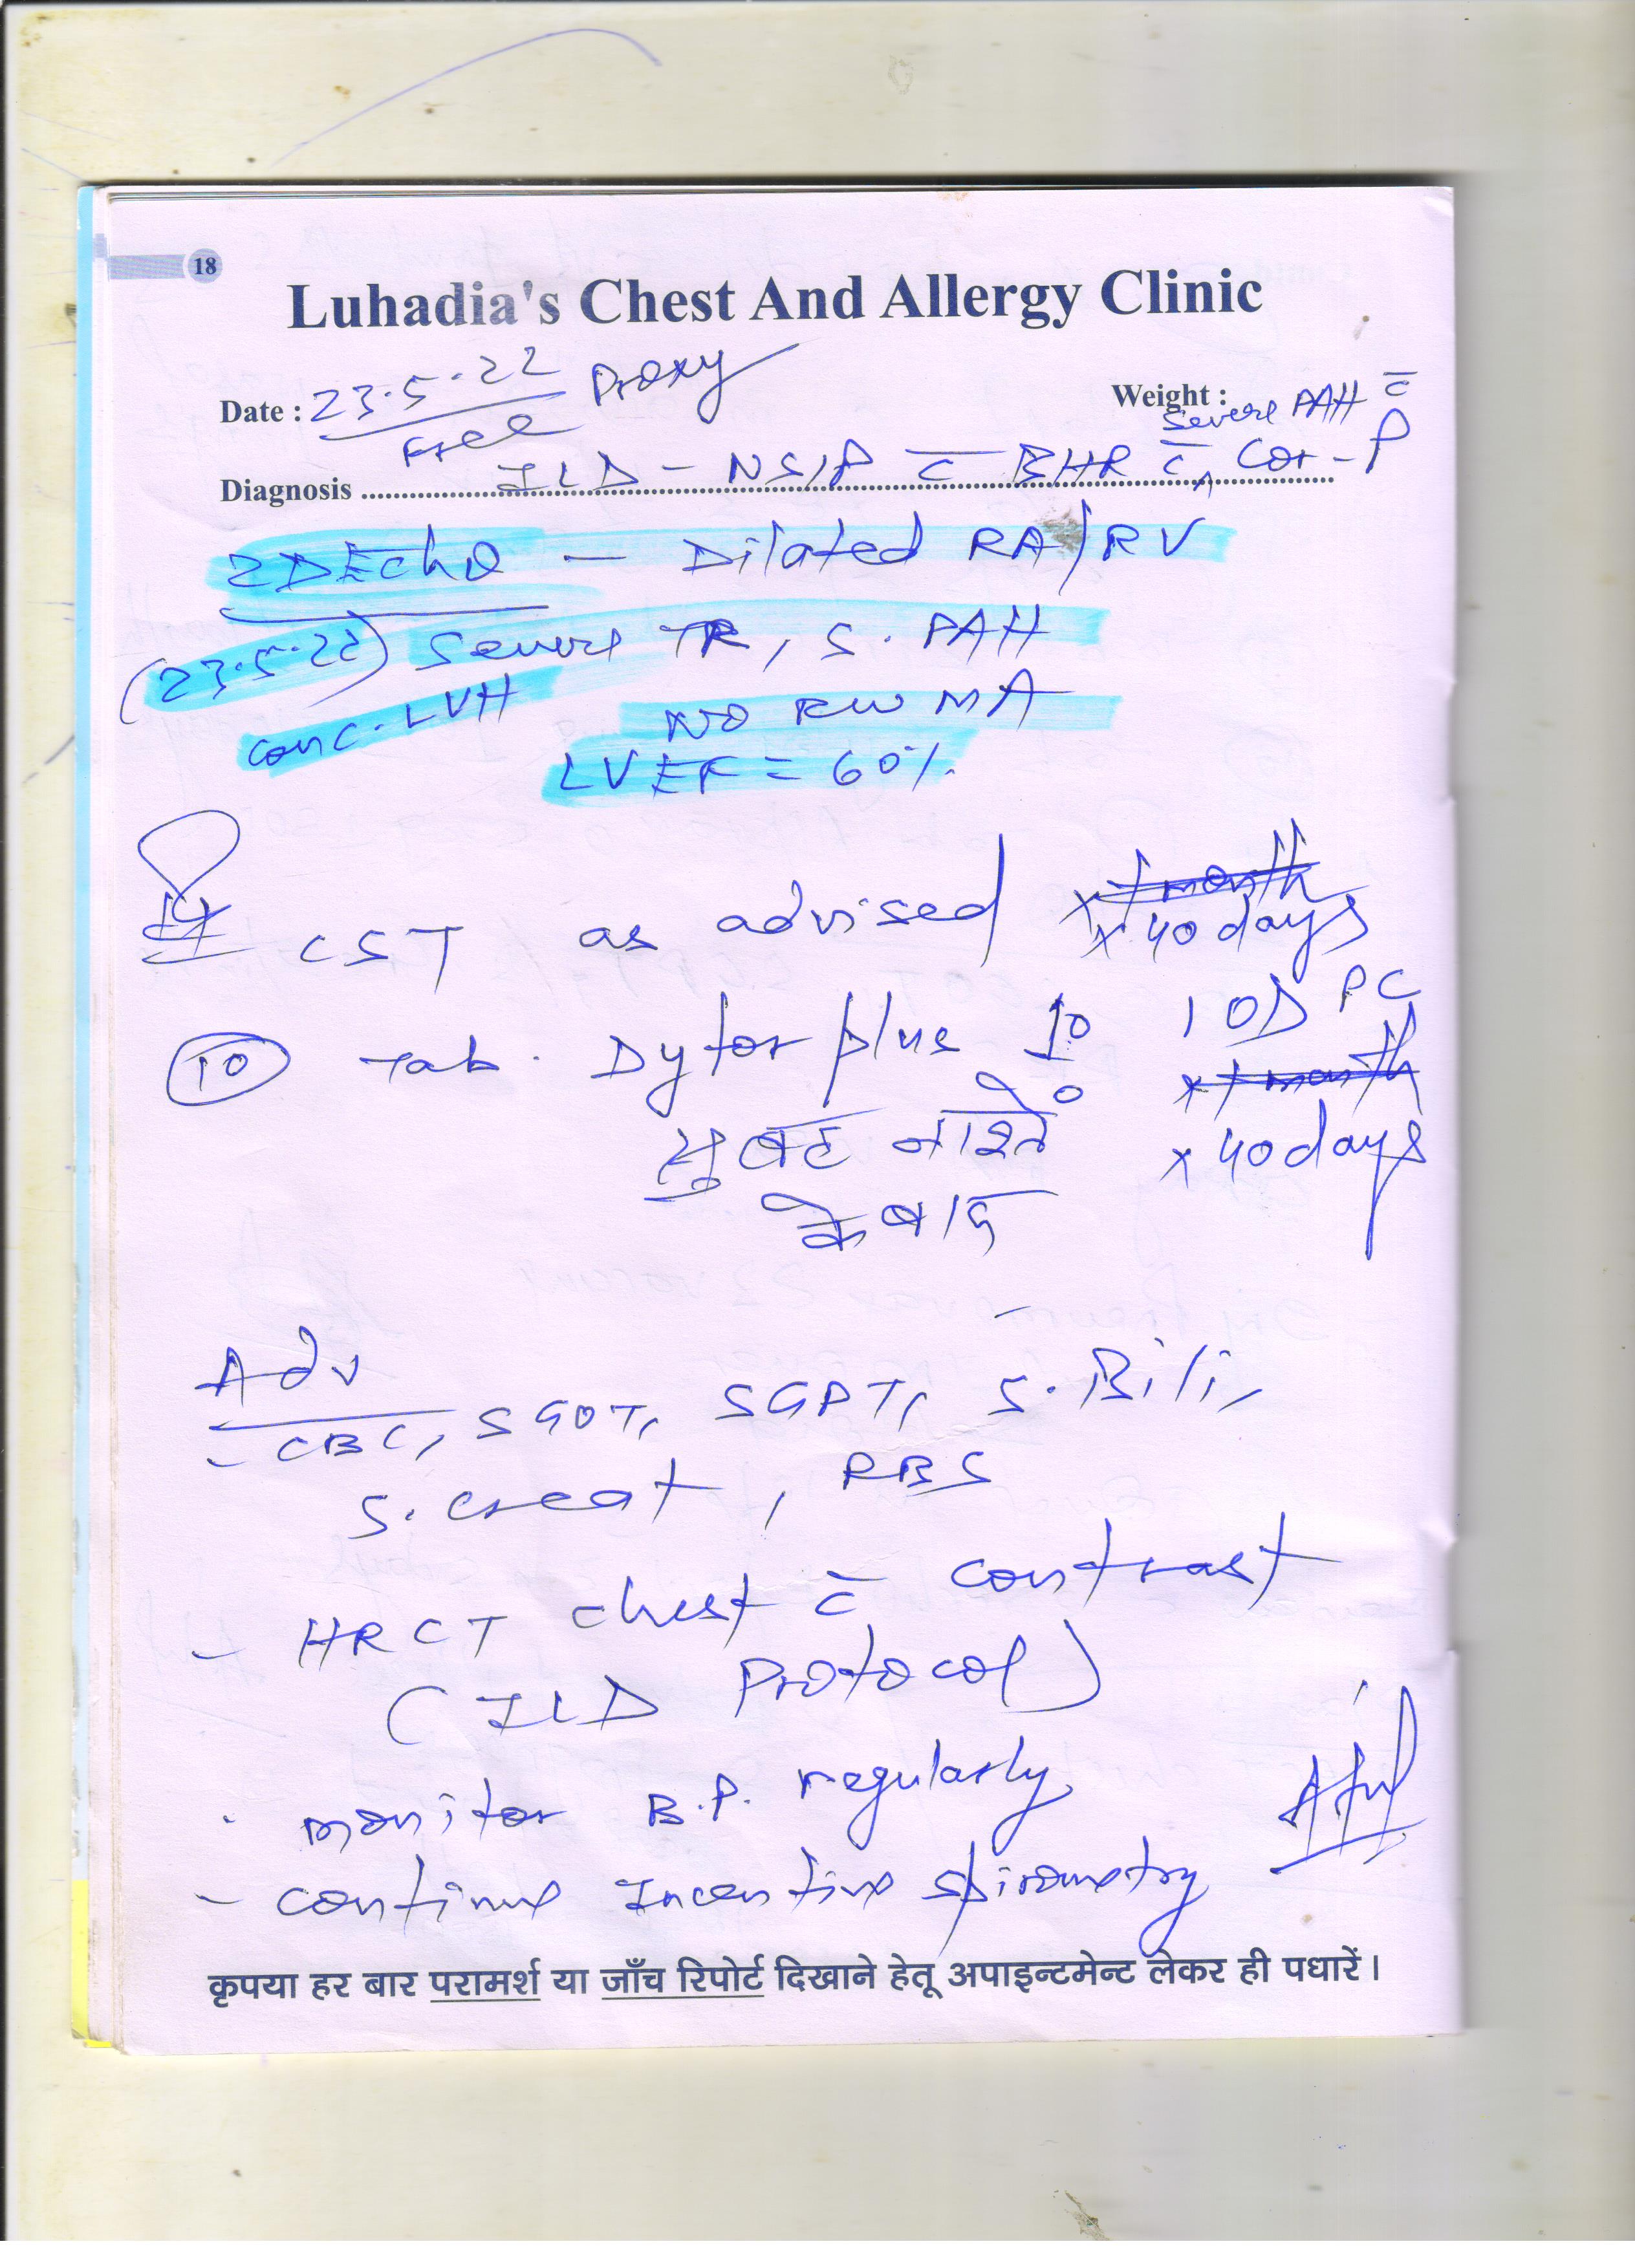 18
Luhadia's Chest And Allergy Clinic
Date : 23.5.22 Proxy
Free
Weight :
Severe PAH c̅
Diagnosis ILD - NSIP c̅ BHR c̅ ^ Cor-P
2DEcho - Dilated RA/RV
(23.5.22) Severe TR, S. PAH
conc. LVH NO RWMA
LVEF = 60%.
CST as advised × 1 month
× 40 days
10 Tab. Dytor plus 10 1 OD PC
× 1 month
सुबह नाश्ते × 40 days
के बाद
Adv
- CBC, SGOT, SGPT, S. Bili,
S. creat, RBS
- HRCT chest c̅ contrast
(ILD Protocol)
. monitor B.P. regularly
- continue Incentive spirometry
कृपया हर बार परामर्श या जाँच रिपोर्ट दिखाने हेतू अपाइन्टमेन्ट लेकर ही पधारें।